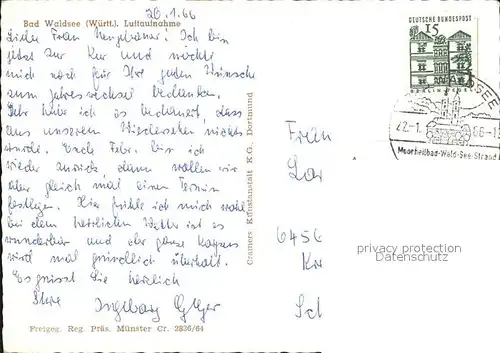 20.1.66
Bad Waldsee (Württ.). Luftaufnahme
Liebe Frau Ich bin
jetzt zur Kur und möchte
mich noch für Ihre guten Wünsche
zum Jahreswechsel bedanken.
Sehr habe ich es bedauert, dass
aus unserem Wiedersehen nichts
wurde. Ende Febr. bin ich
wieder zurück, dann wollen wir
aber gleich mal einen Termin
festlegen. Hier fühle ich mich wohl
bei dem herrlichen Wetter ist es
wunderbar und der ganze Körper
wird mal gründlich überholt.
Es grüsst Sie herzlich
Ihre Ingeborg
Freigeg. Reg. Präs. Münster Cr. 2836/64
Cramers Kunstanstalt K.G. Dortmund
DEUTSCHE BUNDESPOST
15
SEE
22.-1. 66-1
Moorheilbad-Wald-See-Strand
Frau
6456
Kr
Sch
privacy protection
Datenschutz